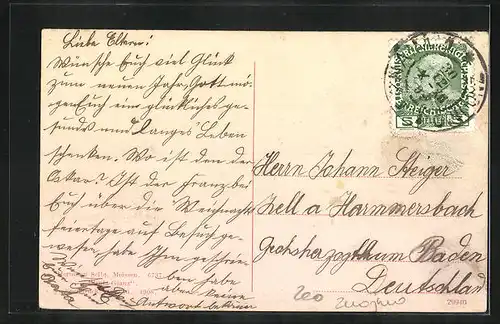 Liebe Eltern!
Wünsche Euch viel Glück
zum neuen Jahr, Gott mö-
ge Euch ein glückliches ge-
sundes und Langes Leben
schenken. Wo ist den der
Oskar? Ist der Franz bei
Euch über die Weihnacht
feiertage auf Besuch ge-
wesen habe Ihm geschrie
ben habe
aber keine
Antwort
Herrn Johann Steiger
Zell a Harmmersbach
Grosherzogthum Baden
Deutschland
Meissen.
29940